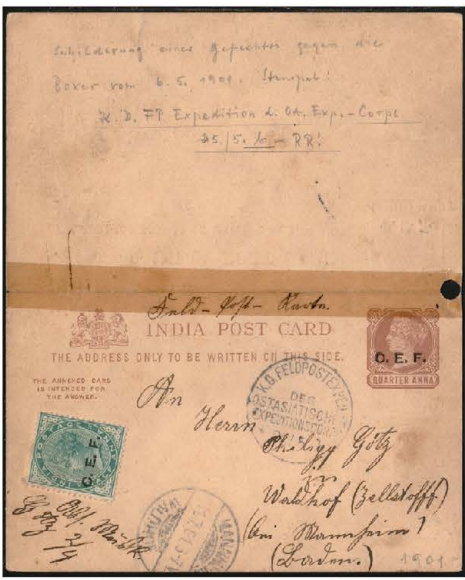 Schilderung eines Gefechtes gegen die
Boxer vom 6.5.1901. Stempel:
K.D. FP Expedition d. OA. Exp.-Corps
25./5.
Feld-Post-Karte.
INDIA POST CARD
THE ADDRESS ONLY TO BE WRITTEN ON THIS SIDE.
C. E. F.
QUARTER ANNA
THE ANNEXED CARD
IS INTENDED FOR
THE ANSWER.
K.D. FELDPOSTEXPED
DER
OSTASIATISCHE
EXPEDITIONSCORPS
An
Herrn
Philipp Götz
Waldhof (Zellstofff)
(bei Mannheim)
(Baden.)
C. E. F.
Götz
MANNHEIM
1901